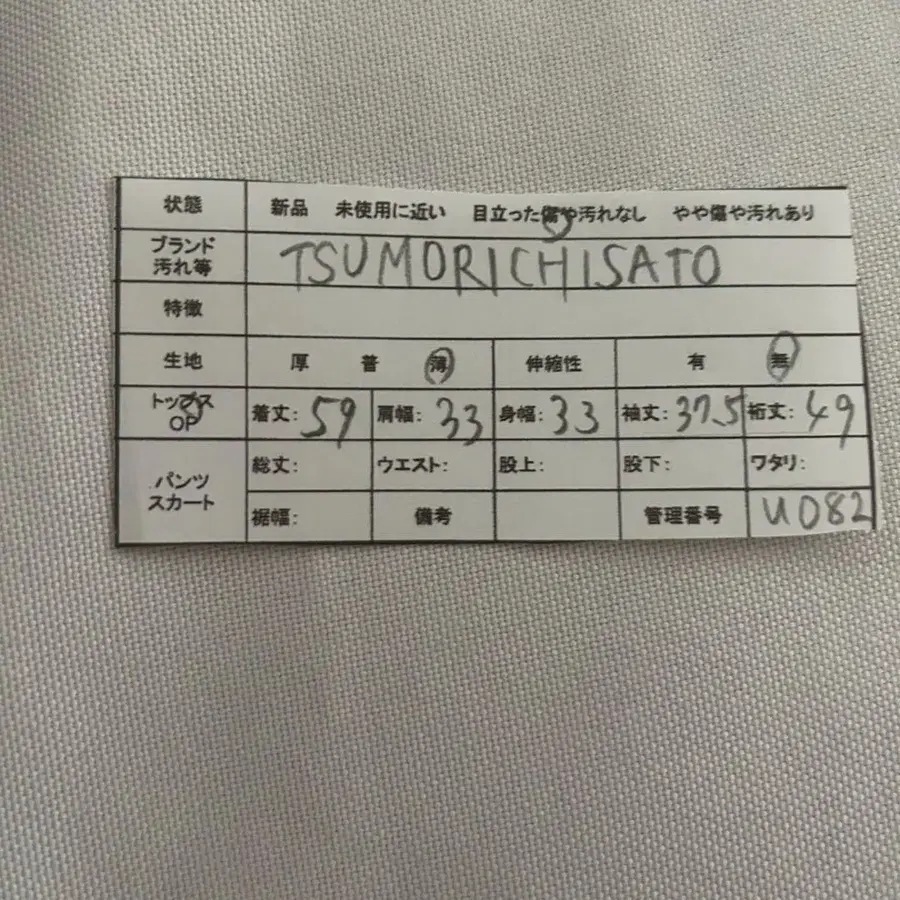 状態 新品 未使用に近い 目立った傷や汚れなし やや傷や汚れあり
ブランド
汚れ等
TSUMORICHISATO
特徴
生地 厚 普 薄 伸縮性 有 無
トップス
OP
着丈: 59 肩幅: 33 身幅: 33 袖丈: 37.5 裄丈: 49
パンツ
スカート
総丈: ウエスト: 股上: 股下: ワタリ:
裾幅: 備考 管理番号 U082